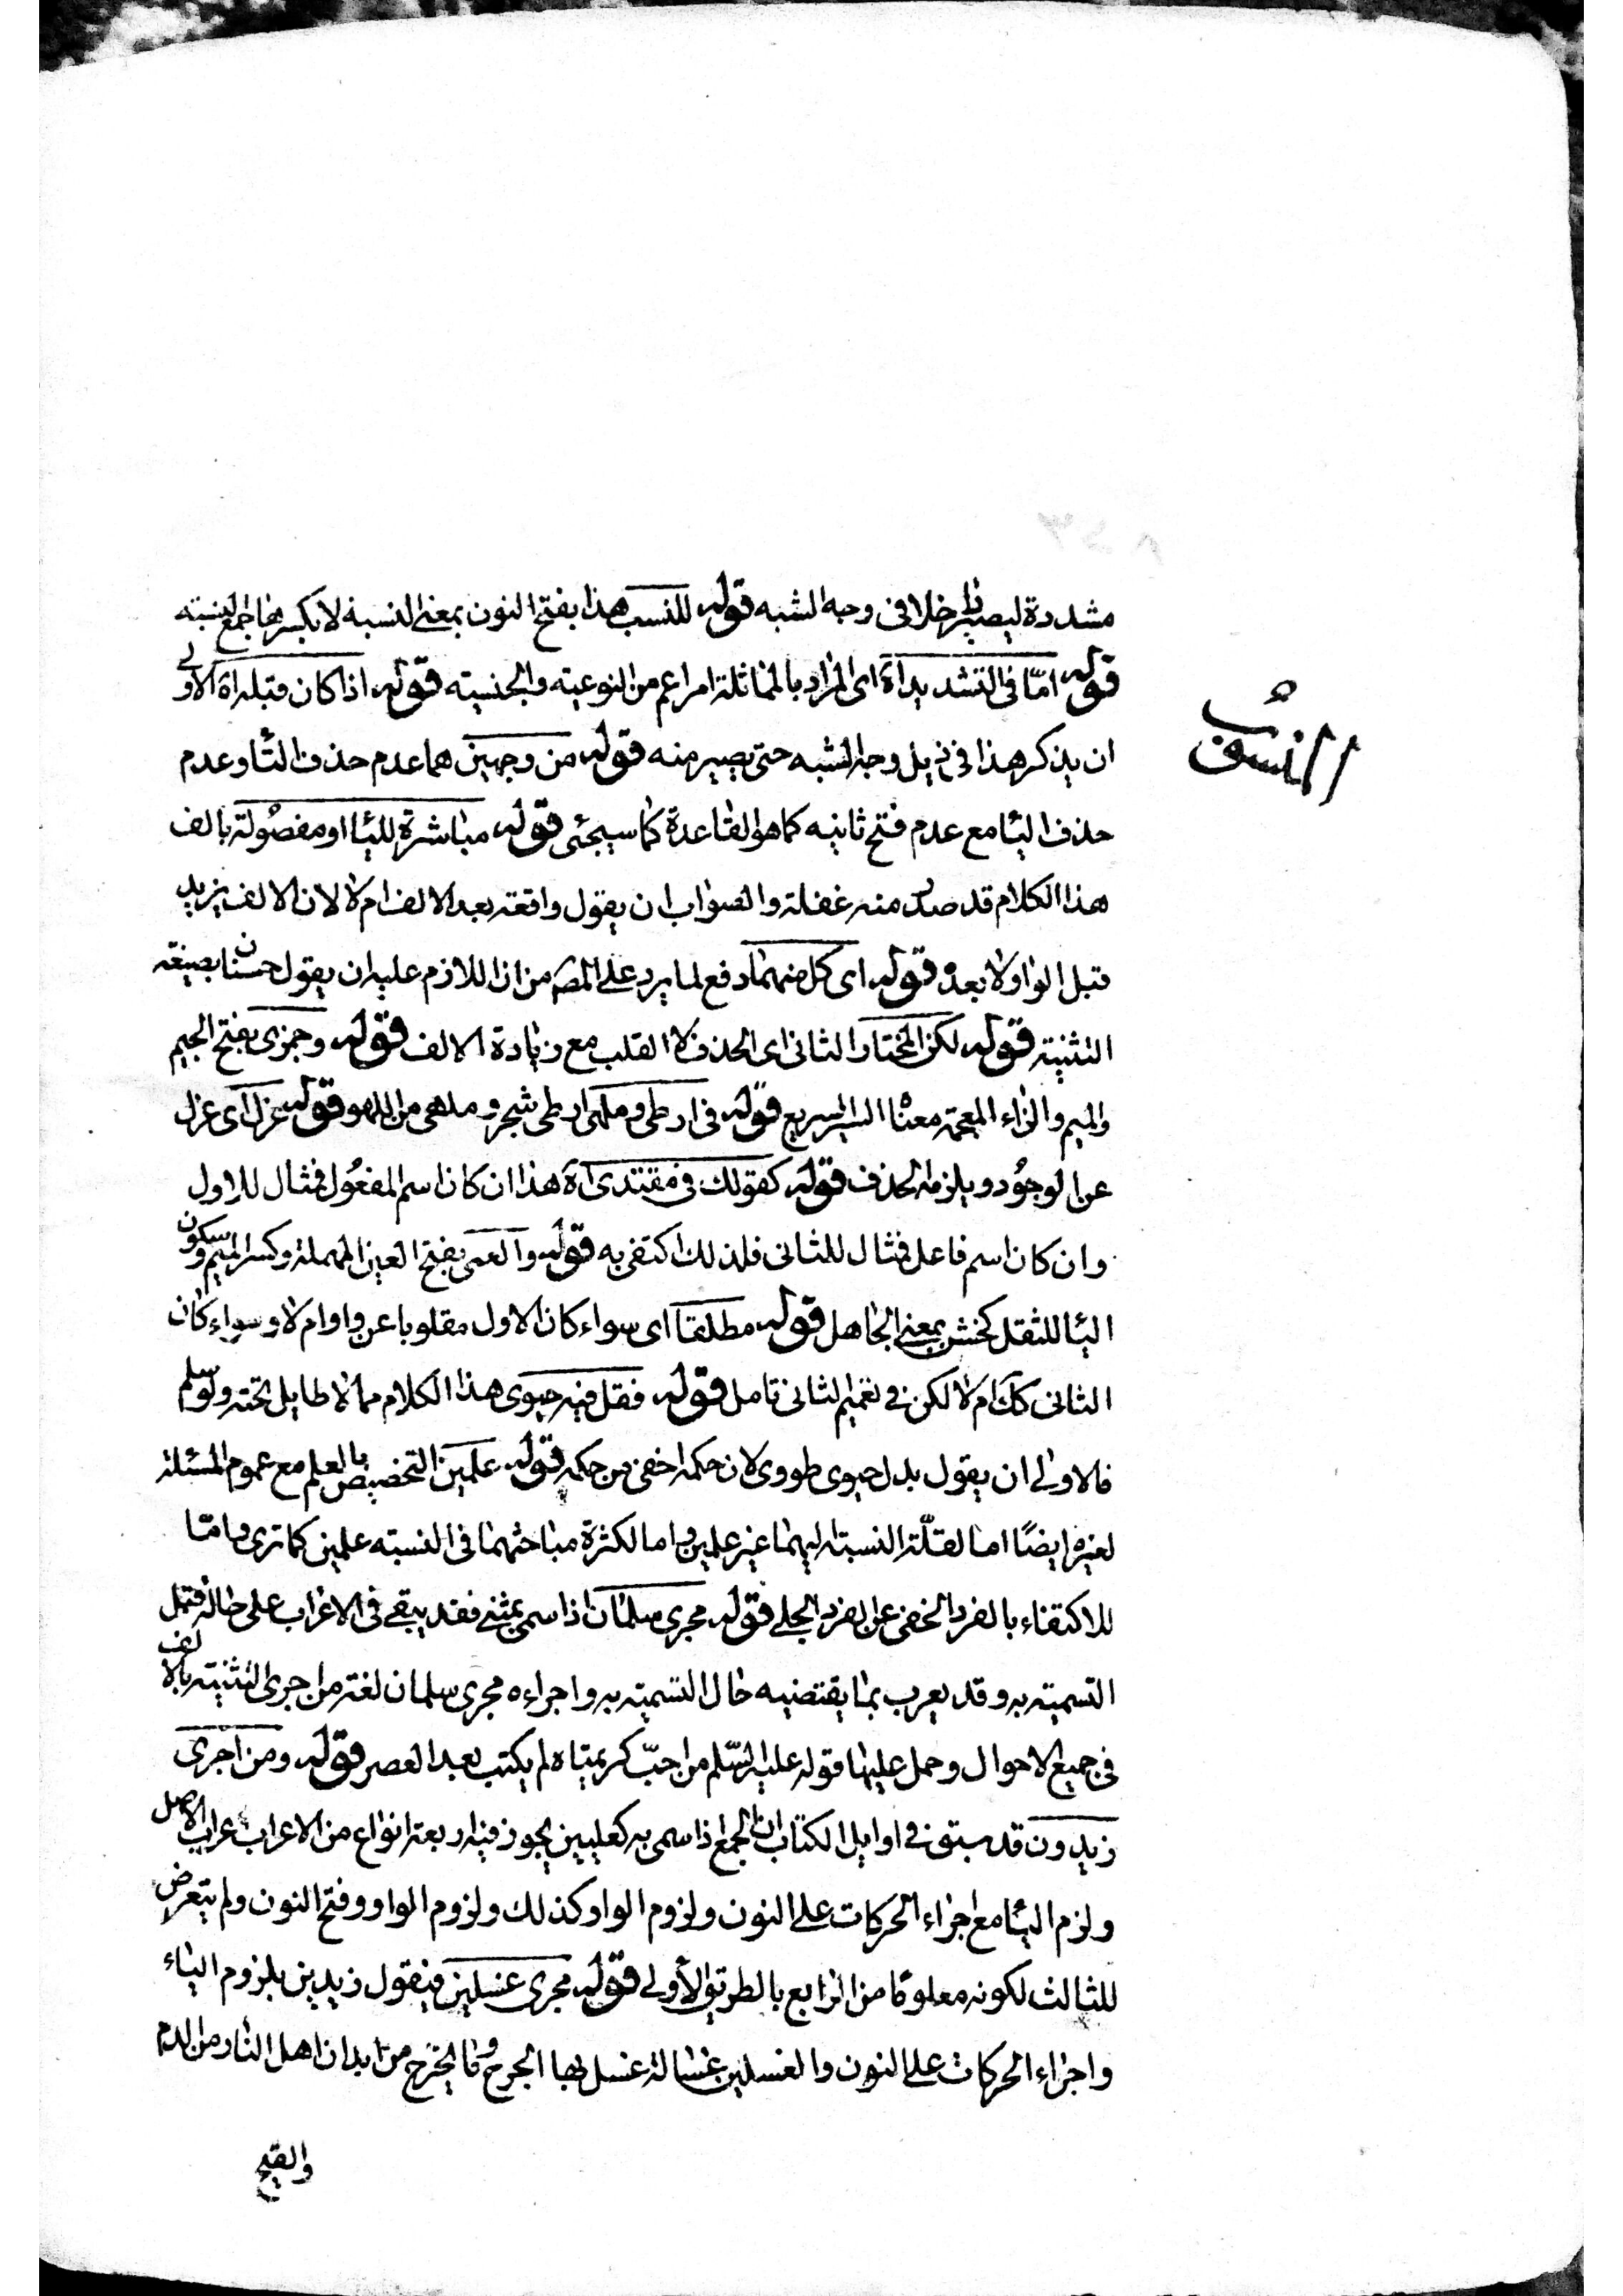 النسب
مشددة ليصير داخلا في وجه الشبه قوله للنسب هذا بفتح النون بمعنى النسبة لا بكسرها جمع نسبته
قوله امّا في التشديد اه اى المراد بالمماثلة امر اعم من النوعيته والجنسيته قوله اذا كان قبله اه الاولى
ان يذكر هذا في ذيل وجه الشبه حتى يصير منه قوله من وجهين هما عدم حذف التاء وعدم
حذف الياء مع عدم فتح ثانيه كما هو القاعدة كما سيجئ قوله مباشرة للياء او مفصولة بالف
هذا الكلام قد صدر منه غفلة والصواب ان يقول واقعة بعد الالف ام لا لان الالف يزيد
قبل الواو لا بعده قوله اى كل منهما دفع لما يرد على المصّ من ان اللازم عليه ان يقول حسنان بصيغة
التثنية قوله لكن المختار الثانى اى الحذف لا القلب مع زيادة الالف قوله وجمزى بفتح الجيم
والميم والزاء المعجمة معناه السير السريع قوله في ارطى وملهى ارطى شجر وملهى من اللهو قوله عزل اى عزل
عن الوجود ويلزمه الحذف قوله كقولك في مقتدى اه هذا ان كان اسم المفعول فمثال للاول
وان كان اسم فاعل فمثال للثانى فلذلك اكتفى به قوله والعمى بفتح العين المهملة وكسر الميم وسكون
الياء للثقل كخش بمعنى الجاهل قوله مطلقا اى سواء كان الاول مقلوبا عن واو ام لا وسواء كان
الثانى كك ام لا لكن في تعميم الثانى تامل قوله فقل فيه حيوى هذا الكلام مما لا طايل تحته ولو سلم
فالاولى ان يقول بدل حيوى طووى لان حكمه اخفى من حكمه قوله علمين التخصيص بالعلم مع عموم المسئلة
لغيره ايضًا اما لقلّة النسبة اليهما غير علمين واما لكثرة مباحثهما في النسبته علمين كما ترى واما
للاكتفاء بالفرد الخفى عن الفرد الجلى قوله مجرى سلمان اذا سمى بمثنى فقد يبقى في الاعراب على حاله قبل
التسمية به وقد يعرب بما يقتضيه حال التسمية به واجراءه مجرى سلمان لغة من اجرى التثنيته بالالف
في جميع الاحوال وحمل عليها قوله عليه السّلم من احبّ كريمتاه لم يكتب بعد العصر قوله ومن اجرى
زيدون قد سبق في اوايل الكتاب ان الجمع اذا سمى به كعليين يجوز فيه اربعة انواع من الاعراب اعراب الاصل
ولزم الياء مع اجراء الحركات على النون ولزوم الواو كذلك ولزوم الواو وفتح النون ولم يتعرض
للثالث لكونه معلومًا من الرابع بالطريق الأولى قوله مجرى غسلين فيقول زيدين بلزوم الياء
واجراء الحركات على النون والغسلين غسالة غسل بها الجرح وما يخرج من ابدان اهل النار من الدم
والقيح